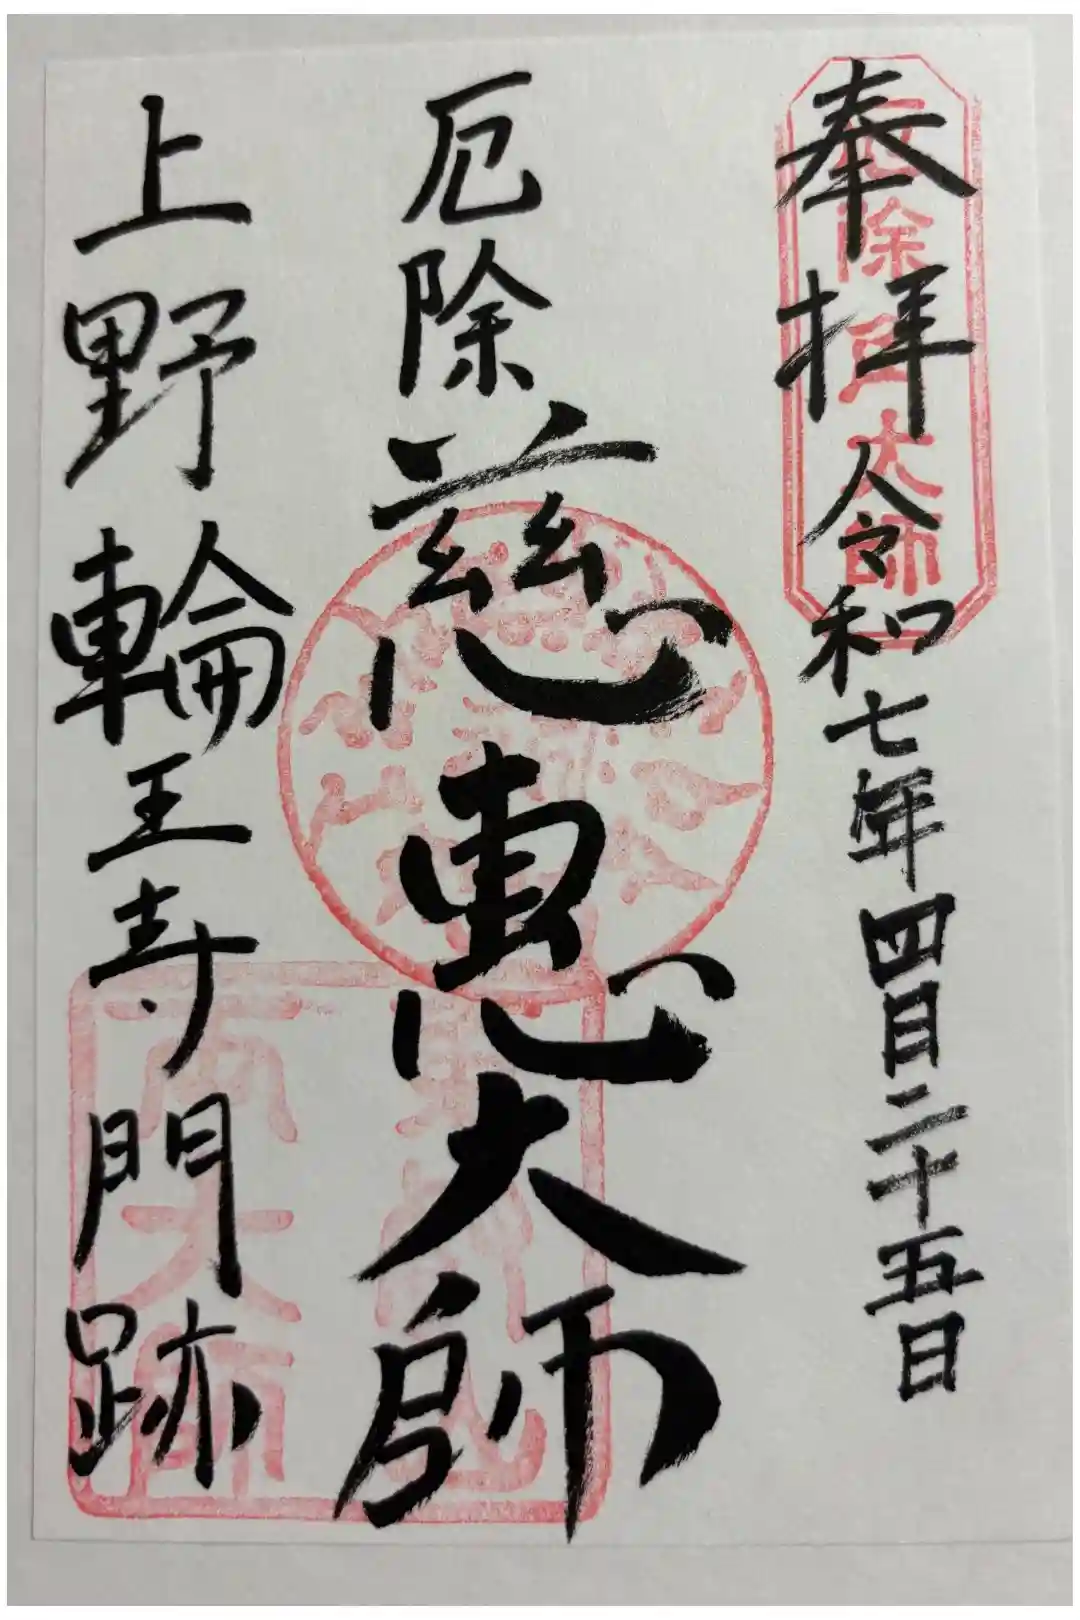 奉拝 令和七年四月二十五日
厄除 慈恵大師
上野輪王寺門跡
厄除両大師
両大師